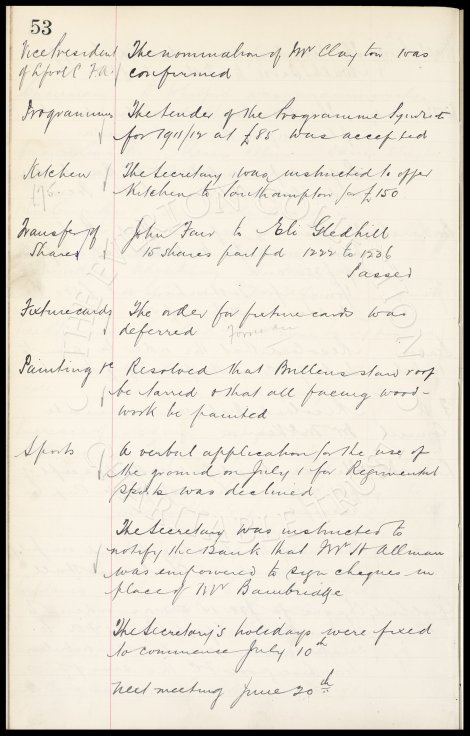 53
Vice President The nomination of Mr Clayton was
of L'pool C F.A. confirmed
Programmes The tender of the Programme Syndicate
for 1911/12 at £85 was accepted
Kitchen The Secretary was instructed to offer
Kitchen to Southampton for £150
Transfer of John Fair to Eli Gledhill
Shares 15 shares part pd 1222 to 1236
Passed
Fixture cards The order for fixture cards was
deferred
Painting &c Resolved that Bullens stand roof
be tarred & that all facing wood-
work be painted
Sports A verbal application for the use of
the ground on July 1 for Regimental
Sports was declined
The Secretary was instructed to
notify the Bank that Mr H Allman
was empowered to sign cheques in
place of Mr Bainbridge
The Secretary's holidays were fixed
to commence July 10th
Next meeting June 20th
THE EVERTON COLLECTION
CHARITABLE TRUST